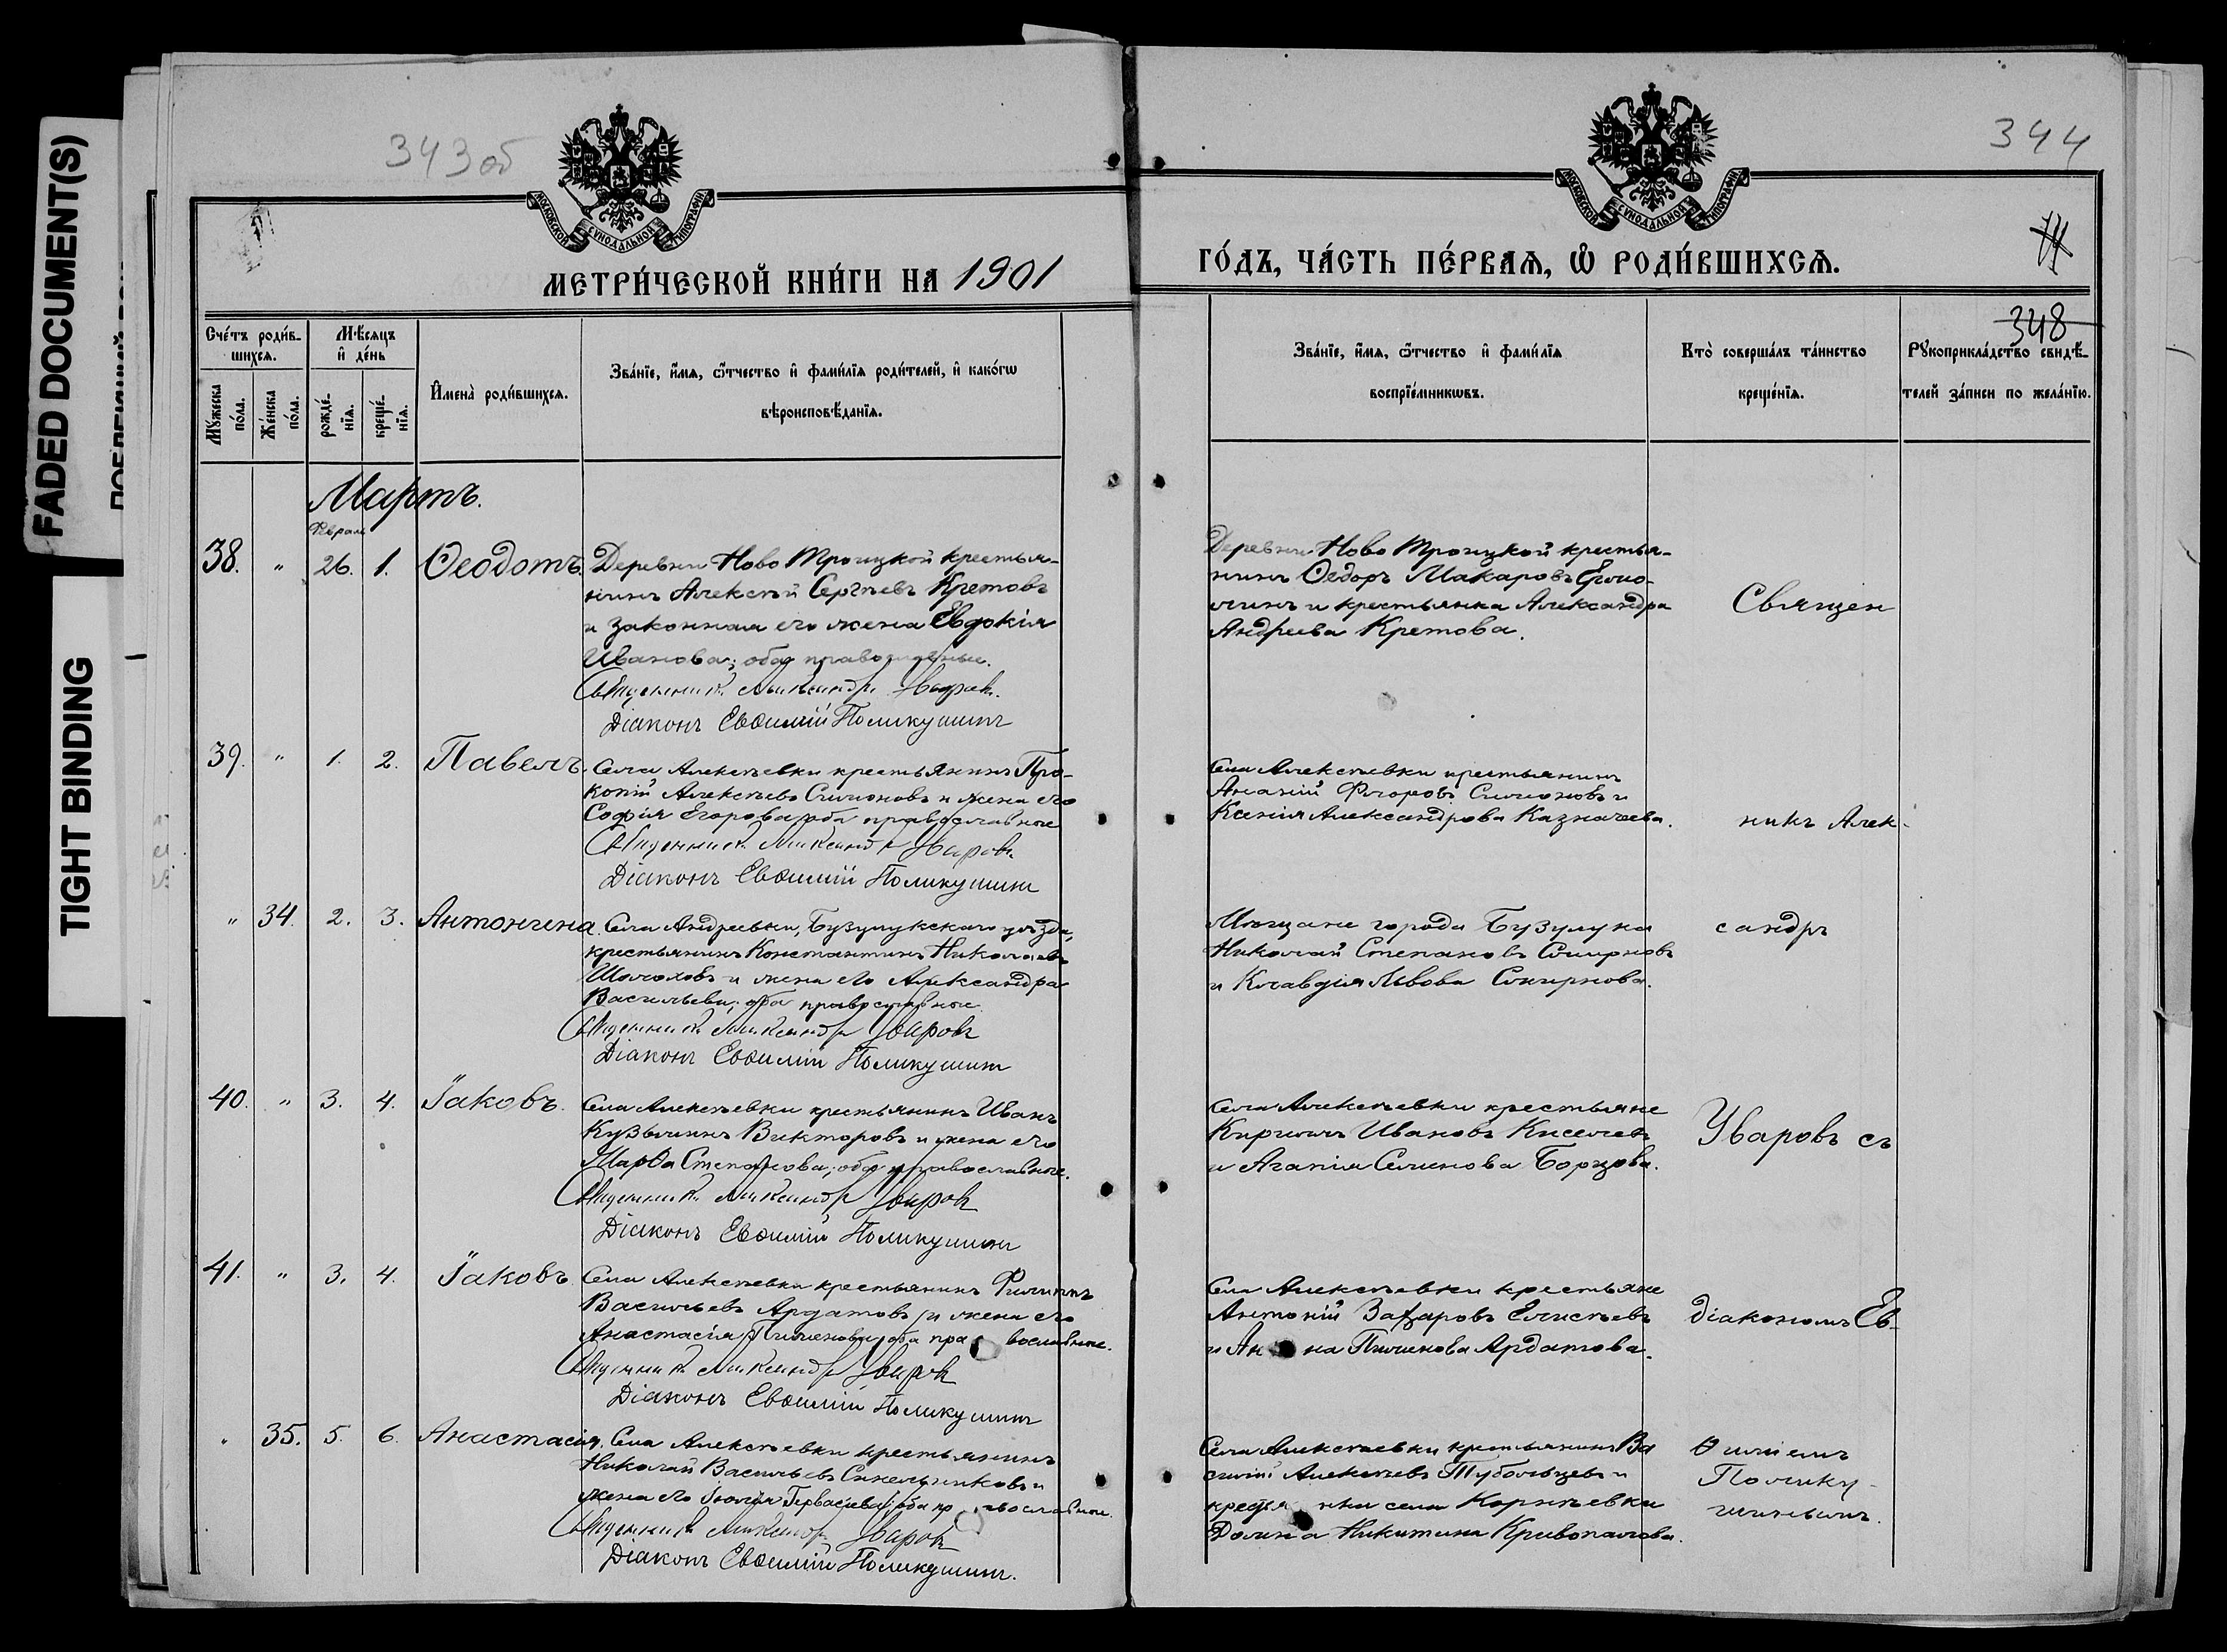 FADED DOCUMENT(S)
TIGHT BINDING
343об
МОСКОВСКОЙ СУНОДАЛЬНОЙ ТИПОГРАФІИ
МЕТРИ́ЧЕСКОЙ КНИ́ГИ НА 1901
Сче́тъ роди́в-
шихся.
Мѣ́сяцъ
и҆ де́нь
Мꙋ́жеска
по́ла.
Же́нска
по́ла.
рожде́-
нїя.
креще́-
нїя.
И҆мена̀ роди́вшихся.
Зва́нїе, и҆́мя, ѻ҆́тчество и҆ фами́лїя роди́телей, и҆ како́гѡ
вѣроисповѣ́данїя.
Мартъ.
Феврал
38. " 26. 1. Ѳеодотъ. Деревни Ново Троицкой крестья-
нинъ Алексѣй Сергѣевъ Кретовъ
и законная его жена Евдокія
Иванова; оба православные.
Священникъ Александръ Уваровъ.
Діаконъ Евѳимій Поликушинъ
39. " 1. 2. Павелъ. Села Алексѣевки крестьянинъ Про-
копій Алексѣевъ Симоновъ и жена его
Софія Егорова, оба православные
Священникъ Александръ Уваровъ.
Діаконъ Евѳимій Поликушинъ
" 34 2. 3. Антонина. Села Андреевки, Бузулукскаго уѣзда,
крестьянинъ Константинъ Николаевъ
Шолоховъ и жена его Александра
Васильева; оба православные.
Священникъ Александръ Уваровъ
Діаконъ Евѳимій Поликушинъ
40. " 3. 4. Іаковъ. Села Алексѣевки крестьянинъ Иванъ
Кузьминъ Викторовъ и жена его
Марѳа Степанова; оба православные.
Священникъ Александръ Уваровъ
Діаконъ Евѳимій Поликушинъ
41. " 3. 4. Іаковъ. Села Алексѣевки крестьянинъ Филиппъ
Васильевъ Ардатовъ и жена его
Анастасія Пименова, оба православные.
Священникъ Александръ Уваровъ
Діаконъ Евѳимій Поликушинъ
" 35. 5. 6. Анастасія. Села Алексѣевки крестьянинъ
Николай Васильевъ Синельниковъ и
жена его Іюлія Гервасіева; оба православные.
Священникъ Александръ Уваровъ
Діаконъ Евѳимій Поликушинъ.
344
МОСКОВСКОЙ СУНОДАЛЬНОЙ ТИПОГРАФІИ
ГО́ДЪ, ЧА́СТЬ ПЕ́РВАЯ, Ѡ҆ РОДИ́ВШИХСЯ.
348
Зва́нїе, и҆́мя, ѻ҆́тчество и҆ фами́лїя
воспрїе́мникѡвъ.
Кто̀ соверша́лъ та́инство
креще́нїя.
Рꙋкоприкла́дство свидѣ́-
телей за́писи по жела́нїю.
Деревни Ново Троицкой крестья-
нинъ Ѳедоръ Макаровъ Ермо-
линъ и крестьянка Александра
Андреева Кретова.
Священ
Села Алексѣевки крестьянинъ
Ананій Флоровъ Симоновъ и
Ксенія Александрова Казначеева.
никъ Алек-
Мѣщане города Бузулука
Николай Степановъ Смирновъ
и Клавдія Львова Смирнова.
сандръ
Села Алексѣевки крестьяне
Кириллъ Ивановъ Киселевъ
и Агапія Семенова Борцова.
Уваровъ съ
Села Алексѣевки крестьяне
Антоній Захаровъ Елисѣевъ
и Ан на Пименова Ардатова.
діакономъ Ев-
Села Алексѣевки крестьянинъ Ва
силій Алексѣевъ Тубольцевъ и
крестья нка села Корнѣевки
Домна Никитина Кривопалова.
ѳиміемъ
Полику-
шинымъ.